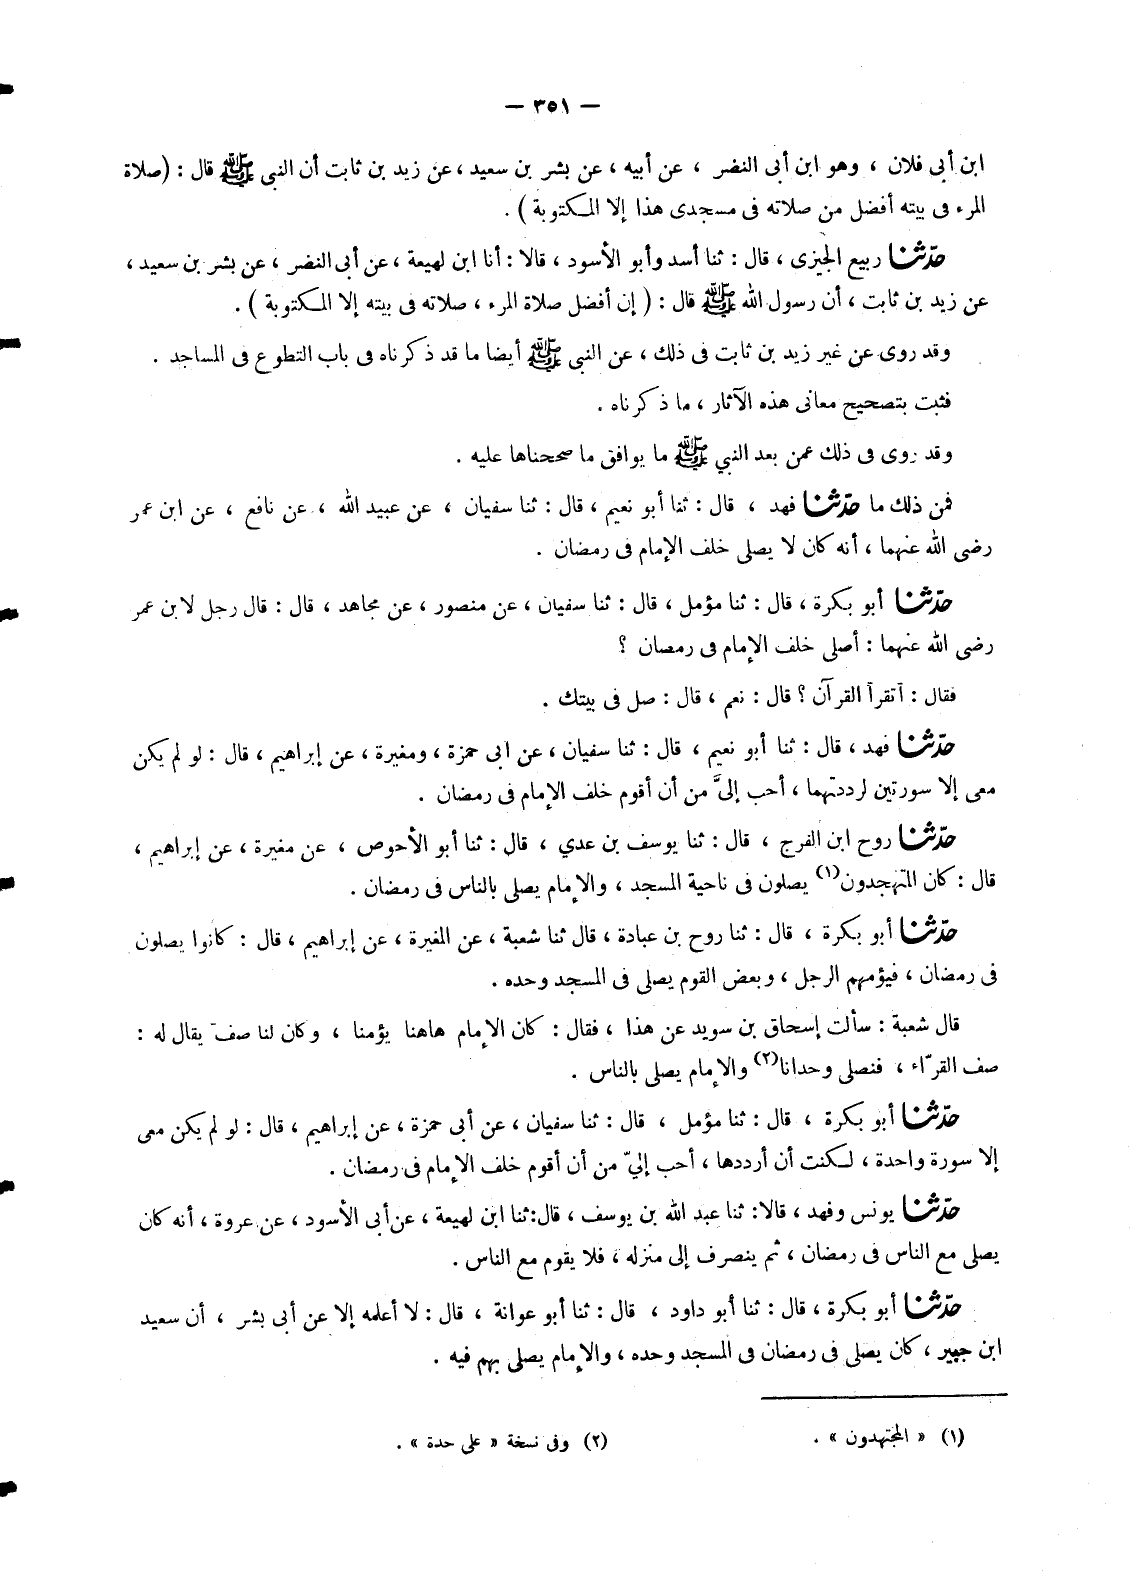 — ٣٥١ —
ابن أبى فلان ، وهو ابن أبى النضر ، عن أبيه ، عن بشر بن سعيد ، عن زيد بن ثابت أن النبى ﷺ قال : (صلاة
المرء فى بيته أفضل من صلاته فى مسجدى هذا إلا المكتوبة ) .
حدّثنا ربيع الجيزى ، قال : ثنا أسد وأبو الأسود ، قالا : أنا ابن لهيعة ، عن أبى النضر ، عن بشر بن سعيد ،
عن زيد بن ثابت ، أن رسول الله ﷺ قال : ( إن أفضل صلاة المرء ، صلاته فى بيته إلا المكتوبة ) .
وقد روى عن غير زيد بن ثابت فى ذلك ، عن النبى ﷺ أيضا ما قد ذكرناه فى باب التطوع فى المساجد .
فثبت بتصحيح معانى هذه الآثار ، ما ذكرناه .
وقد روى فى ذلك عمن بعد النبي ﷺ ما يوافق ما صححناها عليه .
فمن ذلك ما حدّثنا فهد ، قال : ثنا أبو نعيم ، قال : ثنا سفيان ، عن عبيد الله ، عن نافع ، عن ابن عمر
رضى الله عنهما ، أنه كان لا يصلى خلف الإمام فى رمضان .
حدّثنا أبو بكرة ، قال : ثنا مؤمل ، قال : ثنا سفيان ، عن منصور ، عن مجاهد ، قال : قال رجل لابن عمر
رضى الله عنهما : أصلى خلف الإمام فى رمضان ؟
فقال : أتقرأ القرآن ؟ قال : نعم ، قال : صل فى بيتك .
حدّثنا فهد ، قال : ثنا أبو نعيم ، قال : ثنا سفيان ، عن أبى حمزة ، ومغيرة ، عن إبراهيم ، قال : لو لم يكن
معى إلا سورتين لرددتهما ، أحب إلىَّ من أن أقوم خلف الإمام فى رمضان .
حدّثنا روح ابن الفرج ، قال : ثنا يوسف بن عدي ، قال : ثنا أبو الأحوص ، عن مغيرة ، عن إبراهيم ،
قال : كان المتهجدون(١) يصلون فى ناحية المسجد ، والإمام يصلى بالناس فى رمضان .
حدّثنا أبو بكرة ، قال : ثنا روح بن عبادة ، قال ثنا شعبة ، عن المغيرة ، عن إبراهيم ، قال : كانوا يصلون
فى رمضان ، فيؤمهم الرجل ، وبعض القوم يصلى فى المسجد وحده .
قال شعبة : سألت إسحاق بن سويد عن هذا ، فقال : كان الإمام هاهنا يؤمنا ، وكان لنا صف يقال له :
صف القرّاء ، فنصلى وحدانا(٢) والإمام يصلى بالناس .
حدّثنا أبو بكرة ، قال : ثنا مؤمل ، قال : ثنا سفيان ، عن أبى حمزة ، عن إبراهيم ، قال : لو لم يكن معى
إلا سورة واحدة ، لكنت أن أرددها ، أحب إليّ من أن أقوم خلف الإمام فى رمضان .
حدّثنا يونس وفهد ، قالا: ثنا عبد الله بن يوسف ، قال:ثنا ابن لهيعة ، عن أبى الأسود ، عن عروة ، أنه كان
يصلى مع الناس فى رمضان ، ثم ينصرف إلى منزله ، فلا يقوم مع الناس .
حدّثنا أبو بكرة ، قال : ثنا أبو داود ، قال : ثنا أبو عوانة ، قال : لا أعلمه إلا عن أبى بشر ، أن سعيد
ابن جبير ، كان يصلى فى رمضان فى المسجد وحده ، والإمام يصلى بهم فيه .
(١) « المجتهدون » . (٢) وفى نسخة « على حدة » .